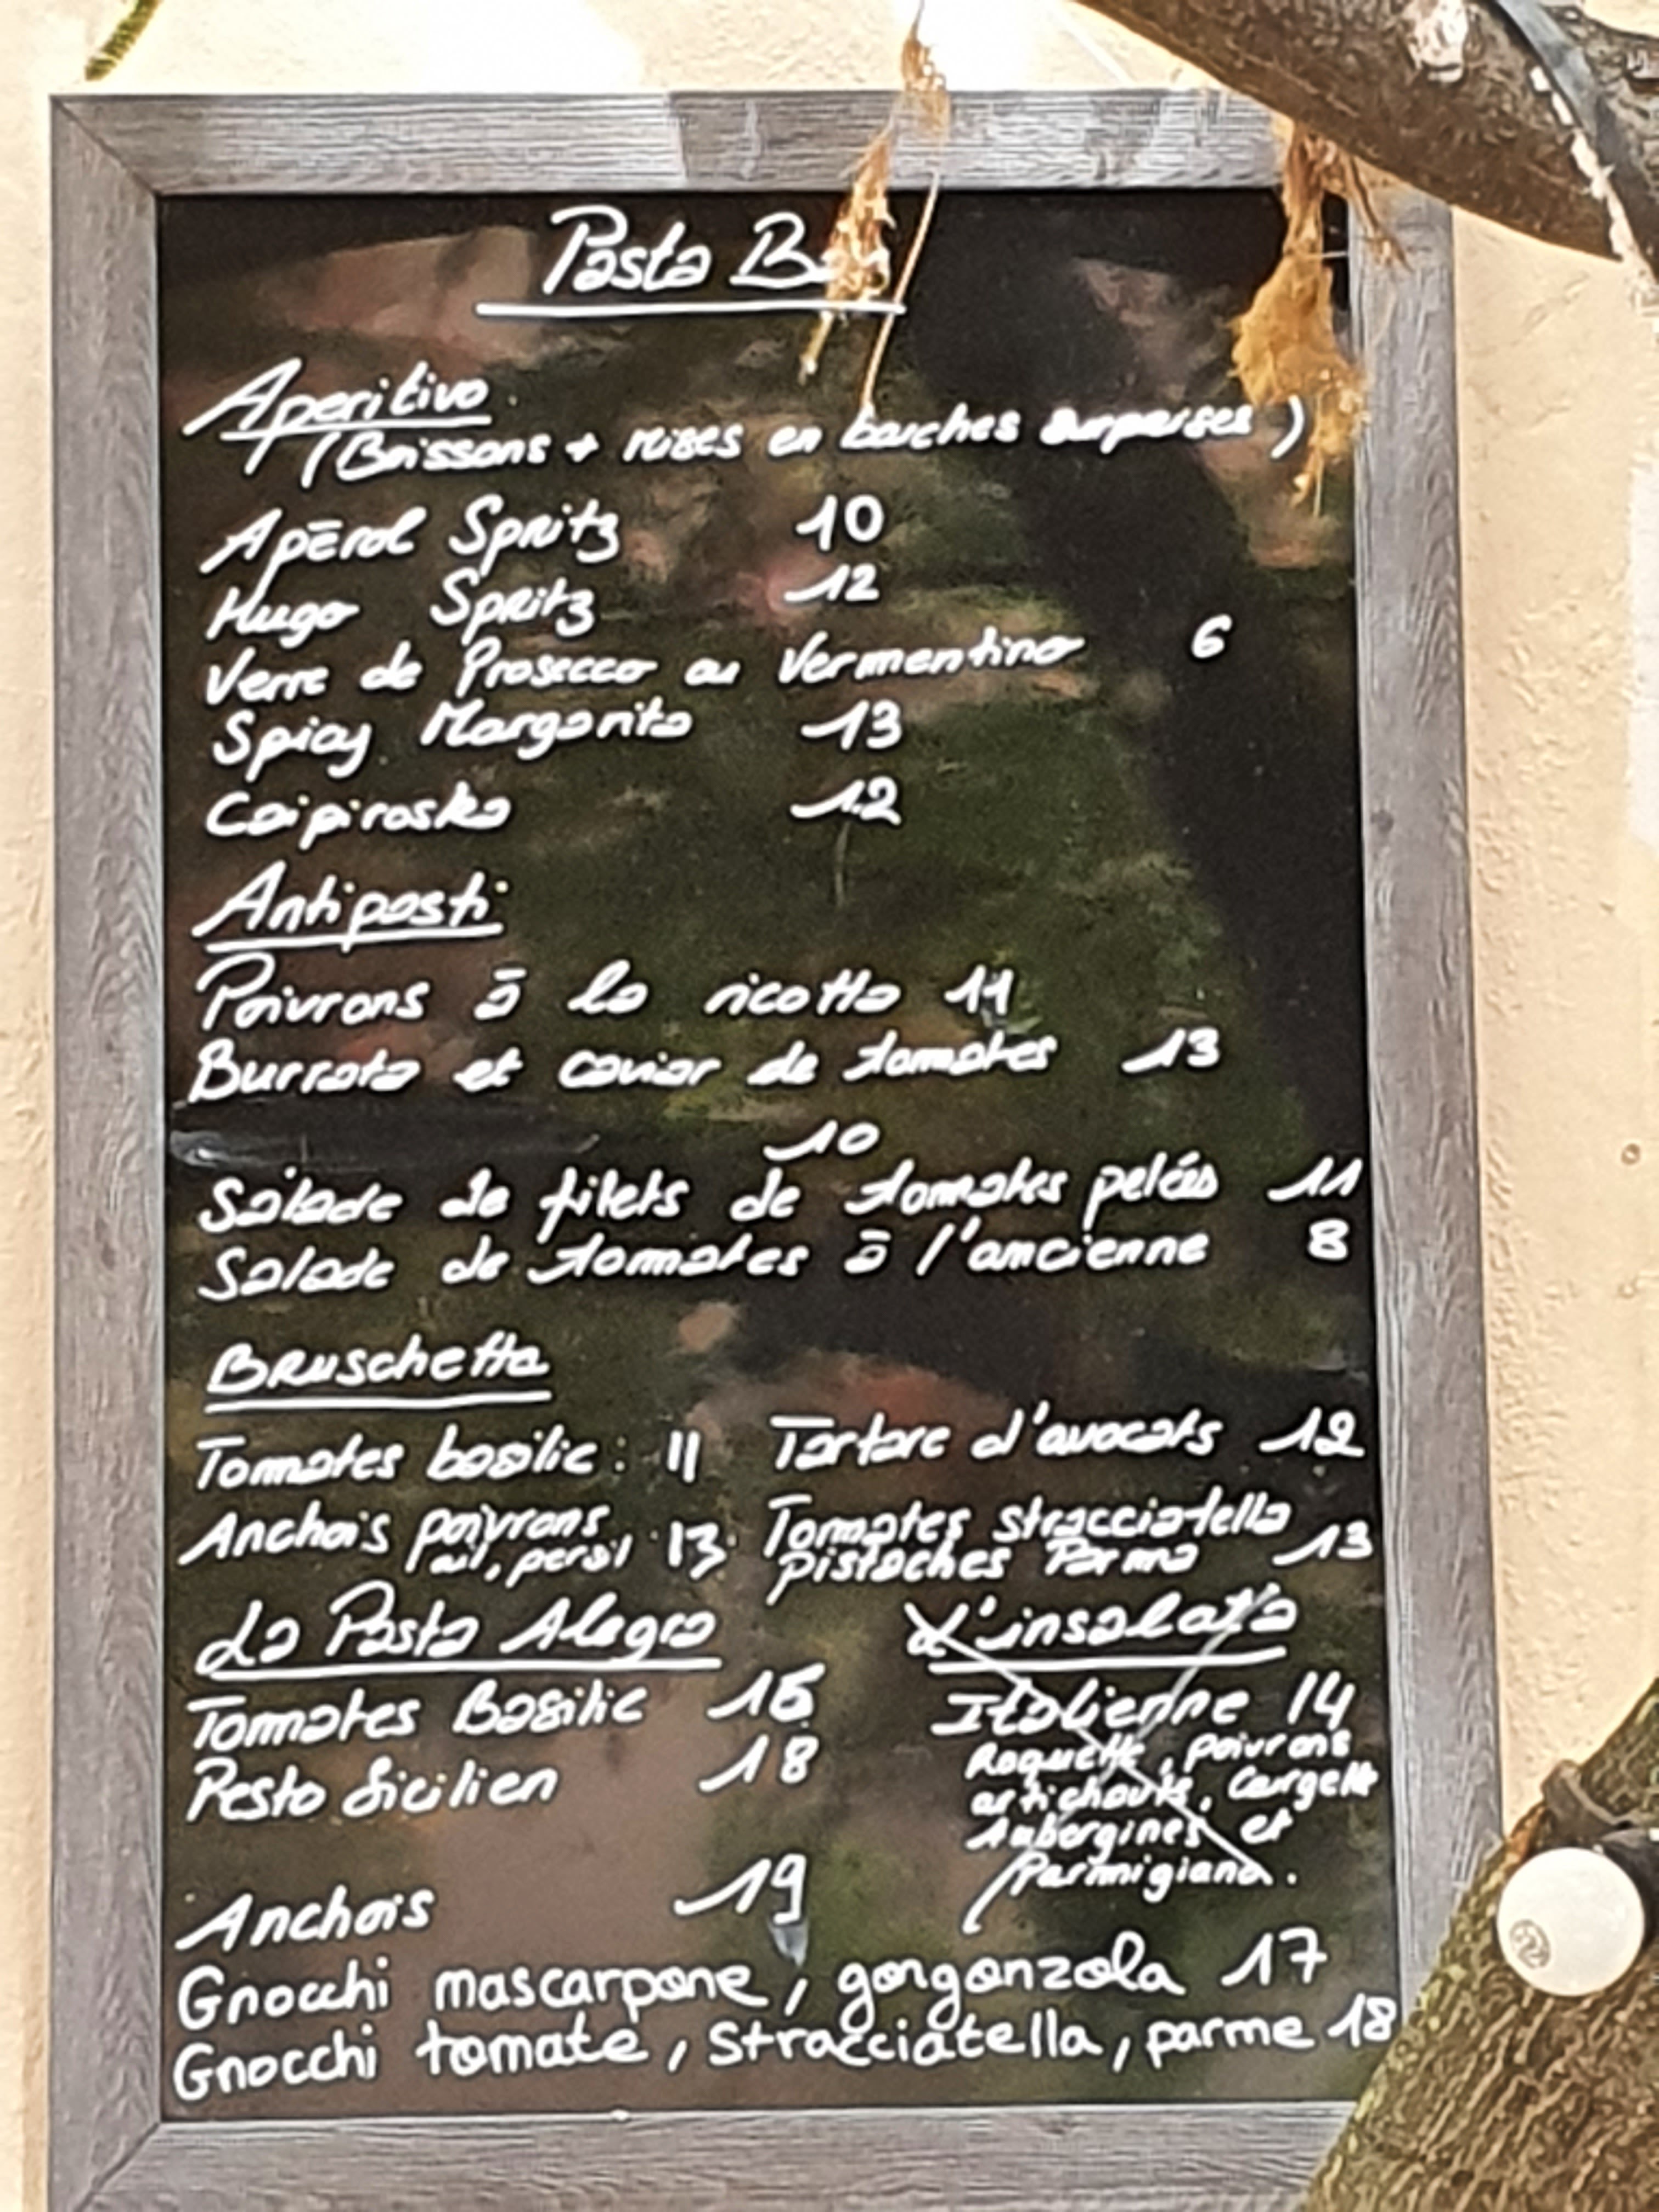 Pasta B
Aperitivo
(Boissons + mises en bouches surperses)
Apérol Spritz 10
Hugo Spritz 12
Verre de Prosecco ou Vermentino 6
Spicy Margarita 13
Caipiroska 12
Antipasti
Poivrons à la ricotta 11
Burrata et caviar de tomates 13
10
Salade de filets de tomates pelées 11
Salade de tomates à l'ancienne 8
Bruschetta
Tomates basilic : 11 Tartare d'avocats 12
Anchois poivrons ail, persil 13 Tomates stracciatella
pistaches Parma 13
La Pasta Alegra
L'insalata
Tomates Basilic 16
Italienne 14
Pesto Sicilien 18
Roquette, poivrons
artichauts,
Aubergines et
Parmigiana.
Anchois 19
Gnocchi mascarpone, gorgonzola 17
Gnocchi tomate, stracciatella, parme 18